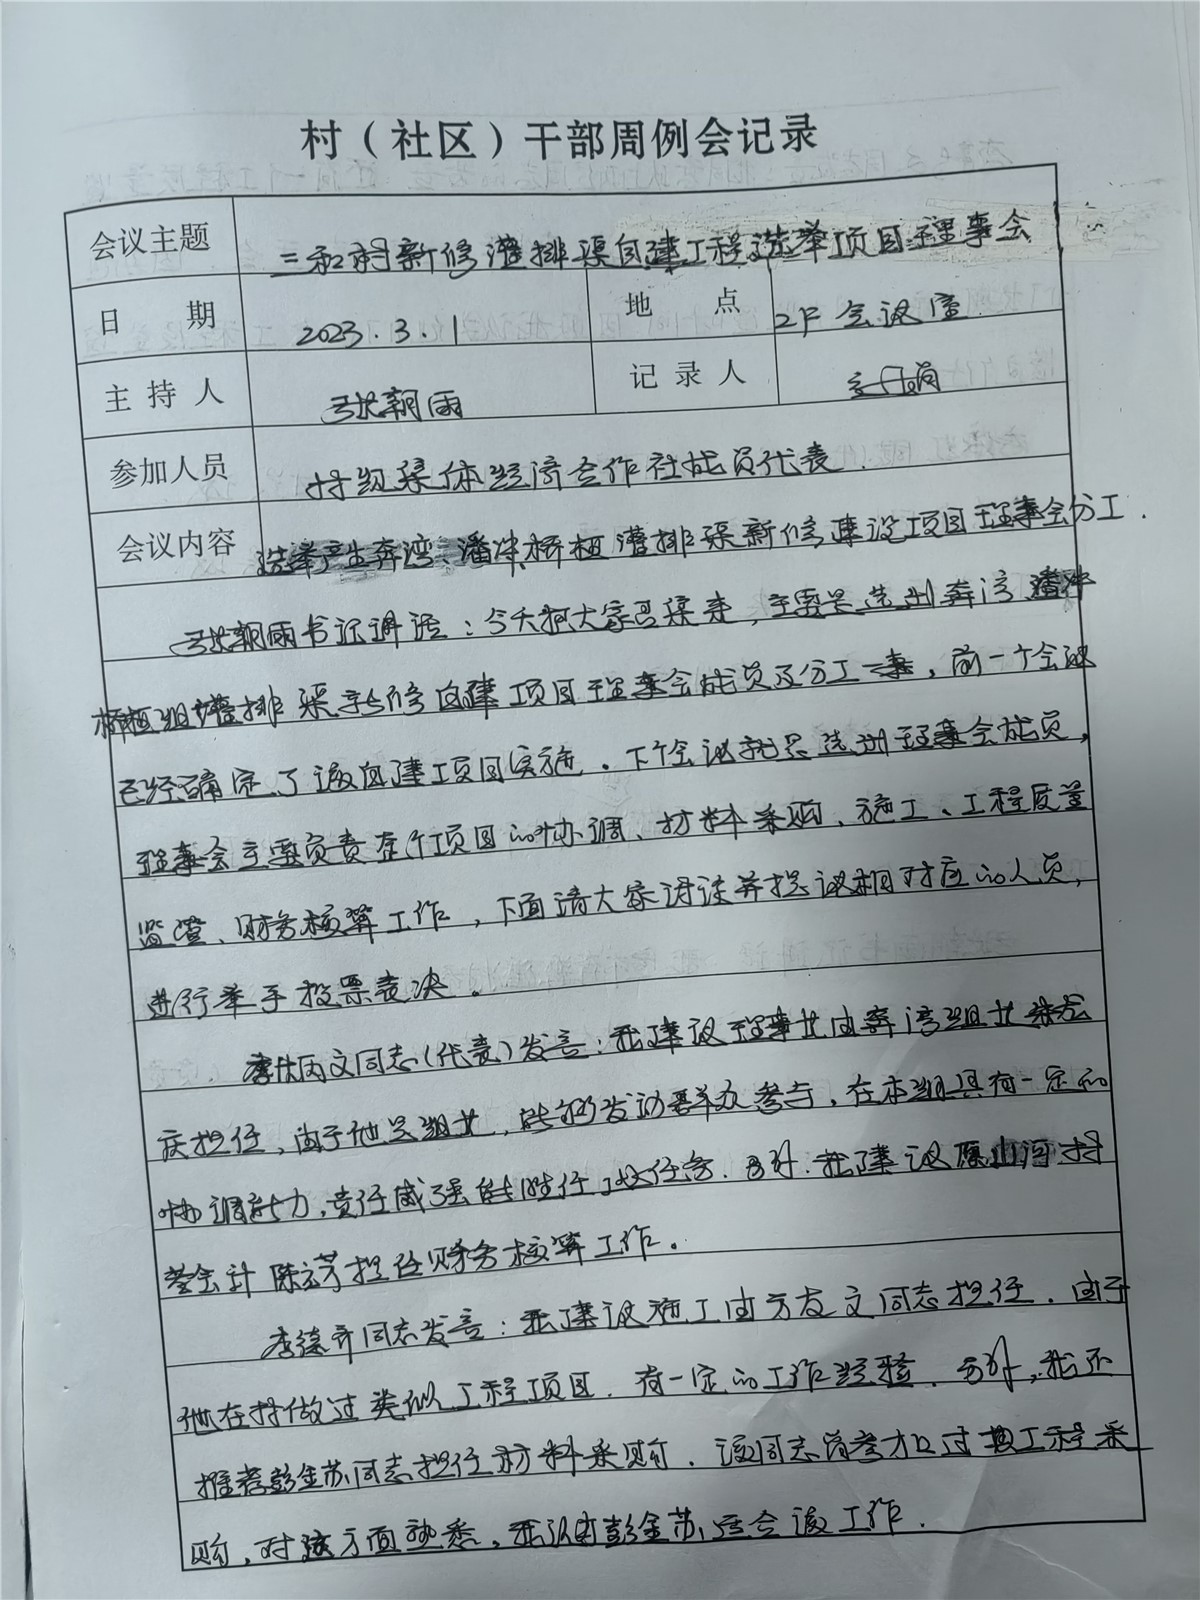 村（社区）干部周例会记录
会议主题 三和村新修灌排渠自建工程选举项目理事会
日期 2023.3.1 地点 2F会议室.
主持人 张朝雨 记录人
参加人员 村级集体经济合作社成员代表.
会议内容 选举产生奔湾、潘冲、桥梗灌排渠新修建设项目理事会分工.
张朝雨书记讲话：今天把大家召集来，主要是选出奔湾、潘冲
桥梗组灌排渠新修自建项目理事会成员及分工一事，前一个会议
已经确定了该自建项目实施。下个会议就是选出理事会成员，
理事会主要负责整个项目的协调、材料采购、施工、工程质量
监管、财务核算工作，下面请大家讨论并提议相对应的人员，
进行举手投票表决。
李炳文同志(代表)发言：我建议理事长由奔湾组长
庆担任，由于他是组长，能够发动群众参与，在本组具有一定的
协调能力，责任感强能胜任此任务.另外.我建议原山河村
老会计陈芳担任财务核算工作。
李德齐同志发言：我建议施工由方友文同志担任.由于
他在村做过类似工程项目.有一定的工作经验.另外，我还
推荐彭金苏同志担任材料采购.该同志曾参加过工程采
购，对该方面熟悉，我认为彭金苏适合该工作.